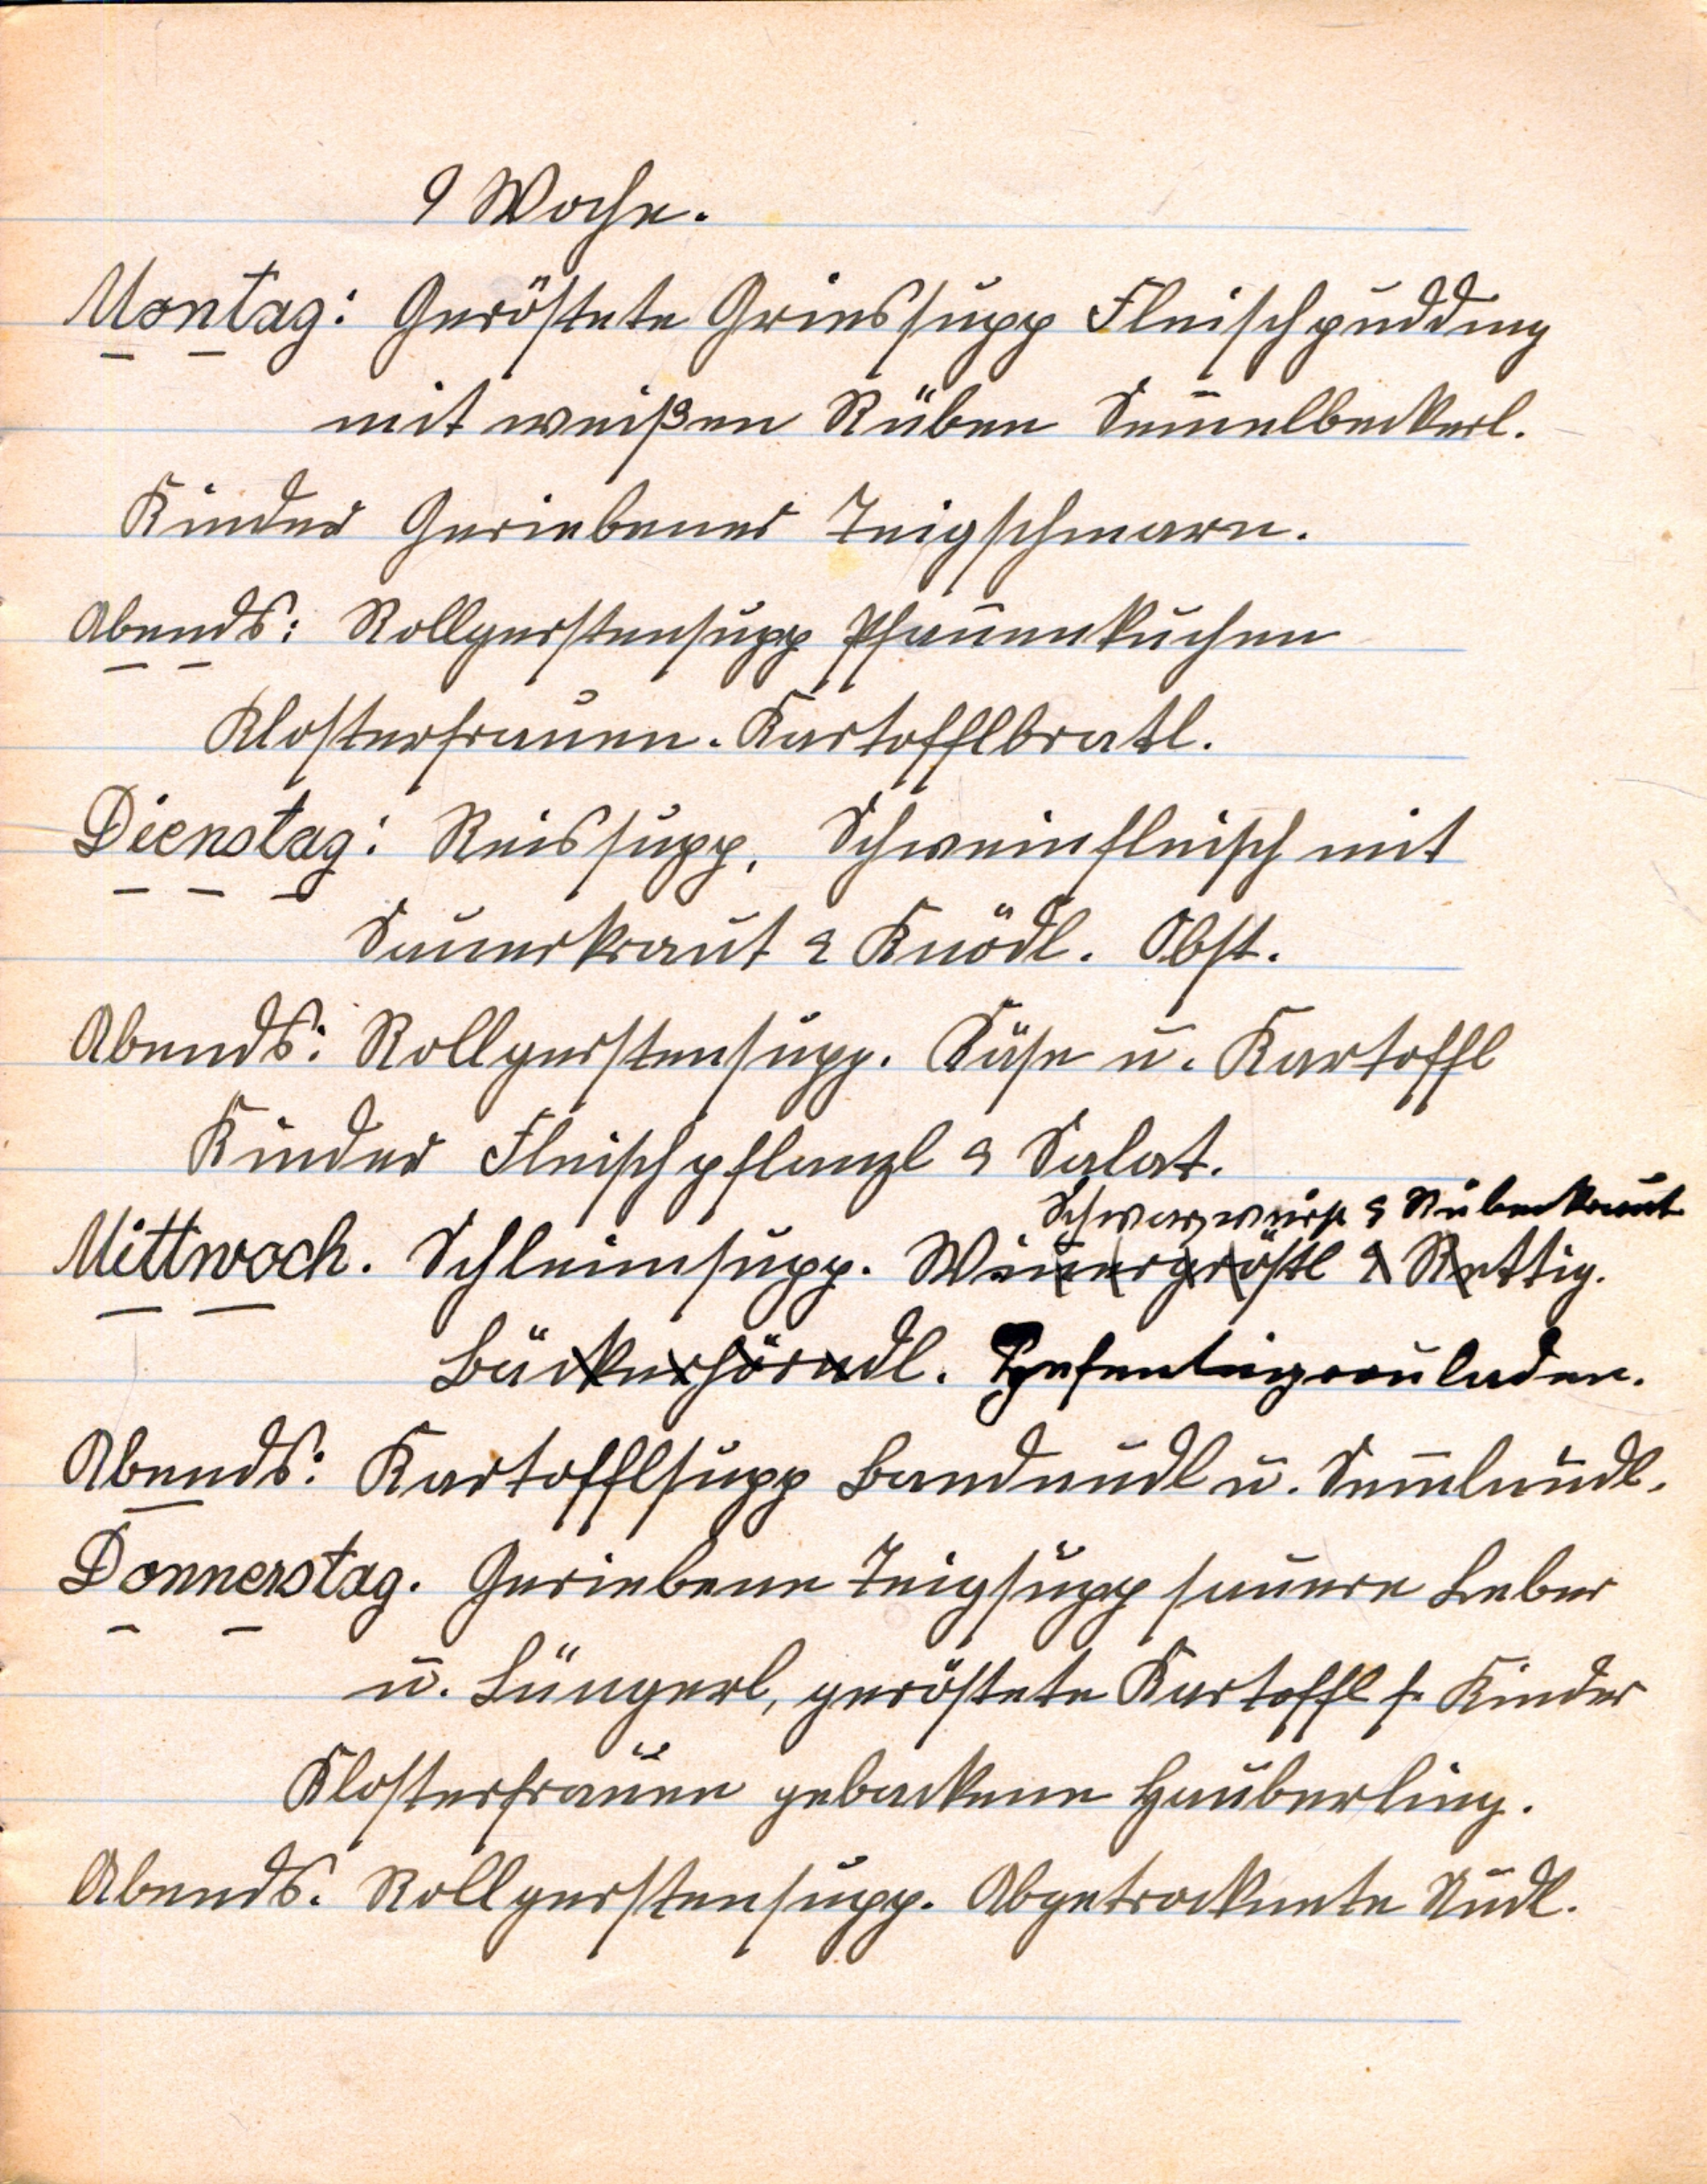 9 Woche.
Montag: Geröstete Griessupp Fleischpudding
mit weißen Rüben Sem̅elbeckerl.
Kinder Geriebener Teigschmarn.
Abends: Rollgerstensupp Pfan̅enkuchen
Klosterfrauen. Kartofflbratl.
Dienstag: Reissupp, Schweinfleisch mit
Sauerkraut & Knödl. Obst.
Abends: Rollgerstensupp. Käse u. Kartoffl
Kinder Fleischpflanzl & Salat.
Schwarzwürst & Rübenkraut
Mittwoch. Schleimsupp. Wienergröstl & Rettig.
Bäckerhörndl. Hefenteigrouladen.
Abends: Kartofflsupp Bandnudl u. Sem̅lnudl.
Donnerstag. Geriebene Teigsupp sauere Leber
u. Lüngerl, geröstete Kartoffl f. Kinder
Klosterfrauen gebackene Hauberling.
Abends. Rollgerstensupp. Abgetrocknete Nudl.